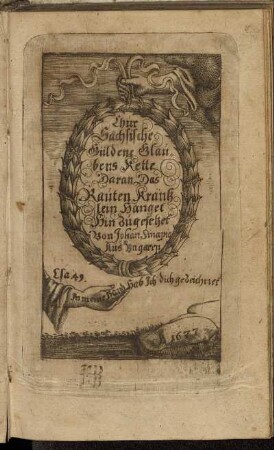 Chur
Sächsische
Güldene Glau,
bens Kette
Daran Das
Rauten Krantz
lein Hanget
Hin zugesetzet
Von Johan. Sinapio
Aus Ungarn
Esa 49.
In meine Händ Hab Ich dich gezeichnet
1677